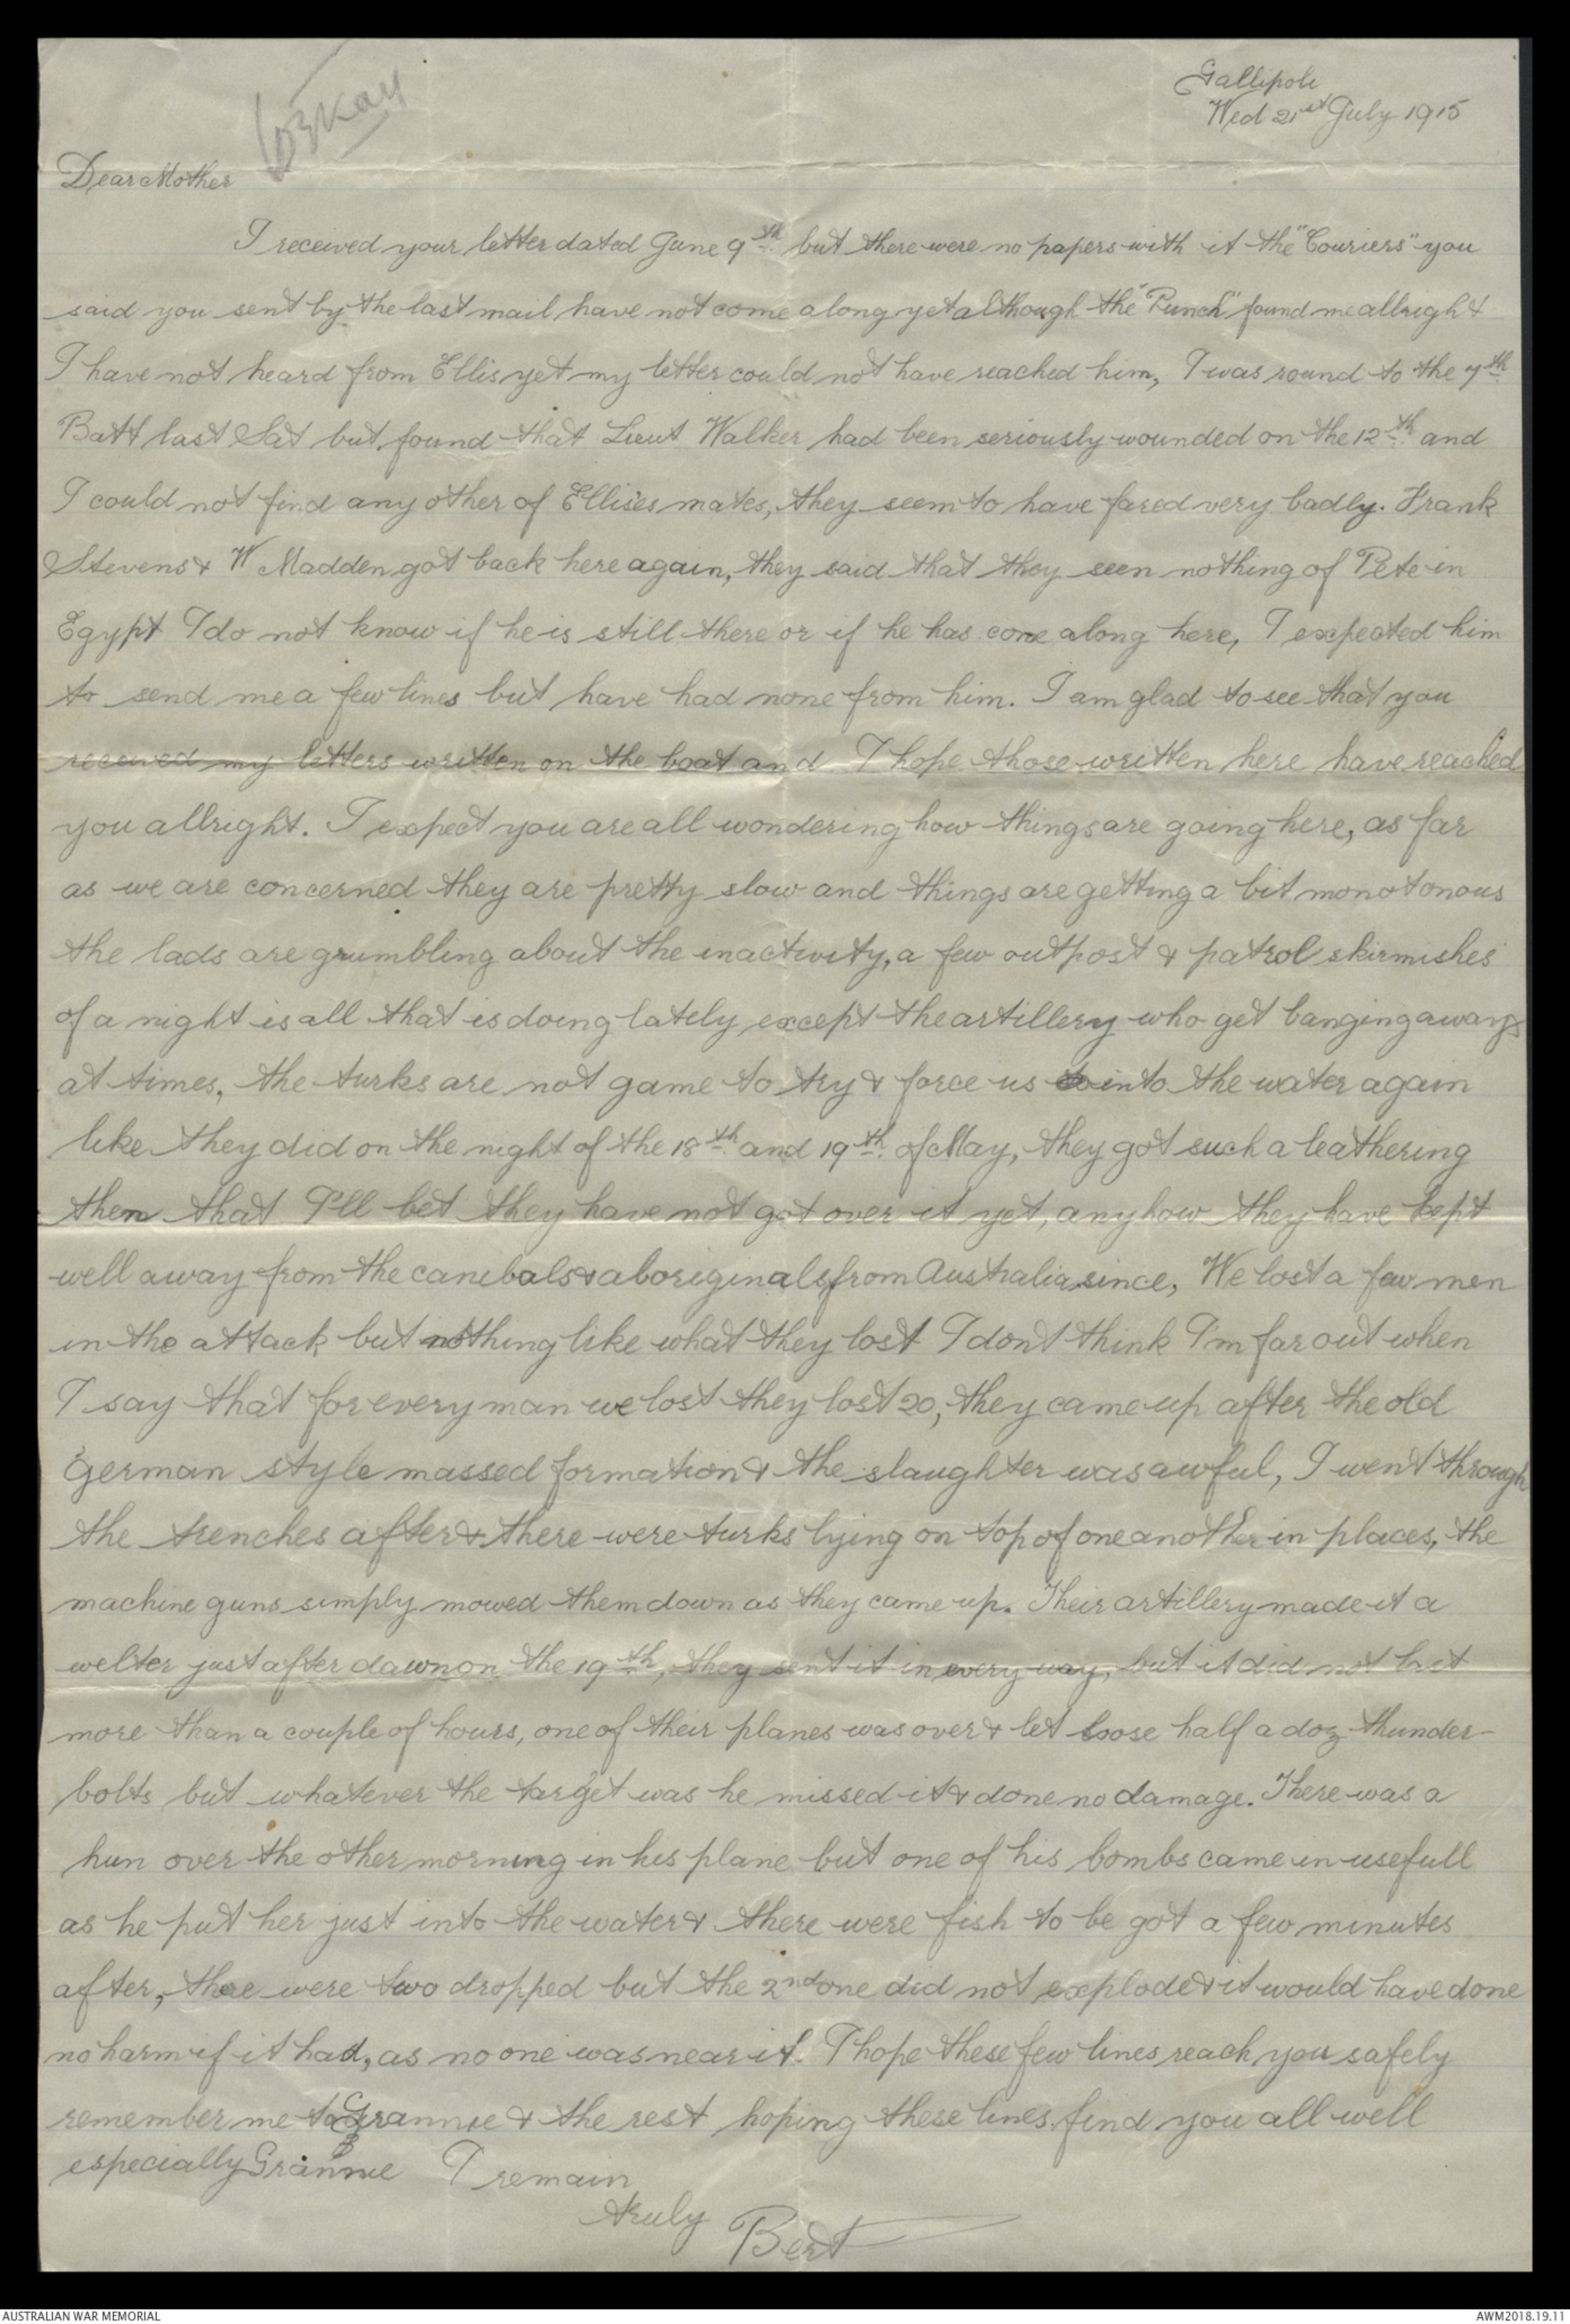 Gallipoli
Wed 21st July 1915
Dear Mother
I received your letter dated June 9th but there were no papers with it the "Couriers" you
said you sent by the last mail have not come along yet although the "Punch" found me allright
I have not heard from Ellis yet my letter could not have reached him, I was round to the 7th
Batt last Sat but found that Lieut Walker had been seriously wounded on the 12th and
I could not find any other of Ellises mates, they seem to have fared very badly. Frank
Stevens & W Madden got back here again, they said that they seen nothing of Pete in
Egypt I do not know if he is still there or if he has come along here, I expected him
to send me a few lines but have had none from him. I am glad to see that you
received my letters written on the boat and I hope those written here have reached
you allright. I expect you are all wondering how things are going here, as far
as we are concerned they are pretty slow and things are getting a bit monotonous
the lads are grumbling about the inactivity, a few outpost & patrol skirmishes
of a night is all that is doing lately except the artillery who get banging away
at times, the turks are not game to try & force us into the water again
like they did on the night of the 18th and 19th of May, they got such a leathering
then that I'll bet they have not got over it yet, anyhow they have kept
well away from the canibals & aboriginals from Australia since, We lost a few men
in the attack but nothing like what they lost I dont think I'm far out when
I say that for every man we lost they lost 20, they came up after the old
German style massed formation & the slaughter was awful, I went through
the trenches after & there were turks lying on top of one another in places, the
machine guns simply mowed them down as they came up. Their artillery made it a
welter just after dawn on the 19th, they sent it in every way, but it did not last
more than a couple of hours, one of their planes was over & let loose half a doz thunder-
bolts but whatever the target was he missed it & done no damage. There was a
hun over the other morning in his plane but one of his bombs came in usefull
as he put her just into the water & there were fish to be got a few minutes
after, there were two dropped but the 2nd one did not explode & it would have done
no harm if it had, as no one was near it. I hope these few lines reach you safely
remember me to Grannie & the rest hoping these lines find you all well
especially Grannie I remain
truly
Bert
AUSTRALIAN WAR MEMORIAL
AWM2018.19.11